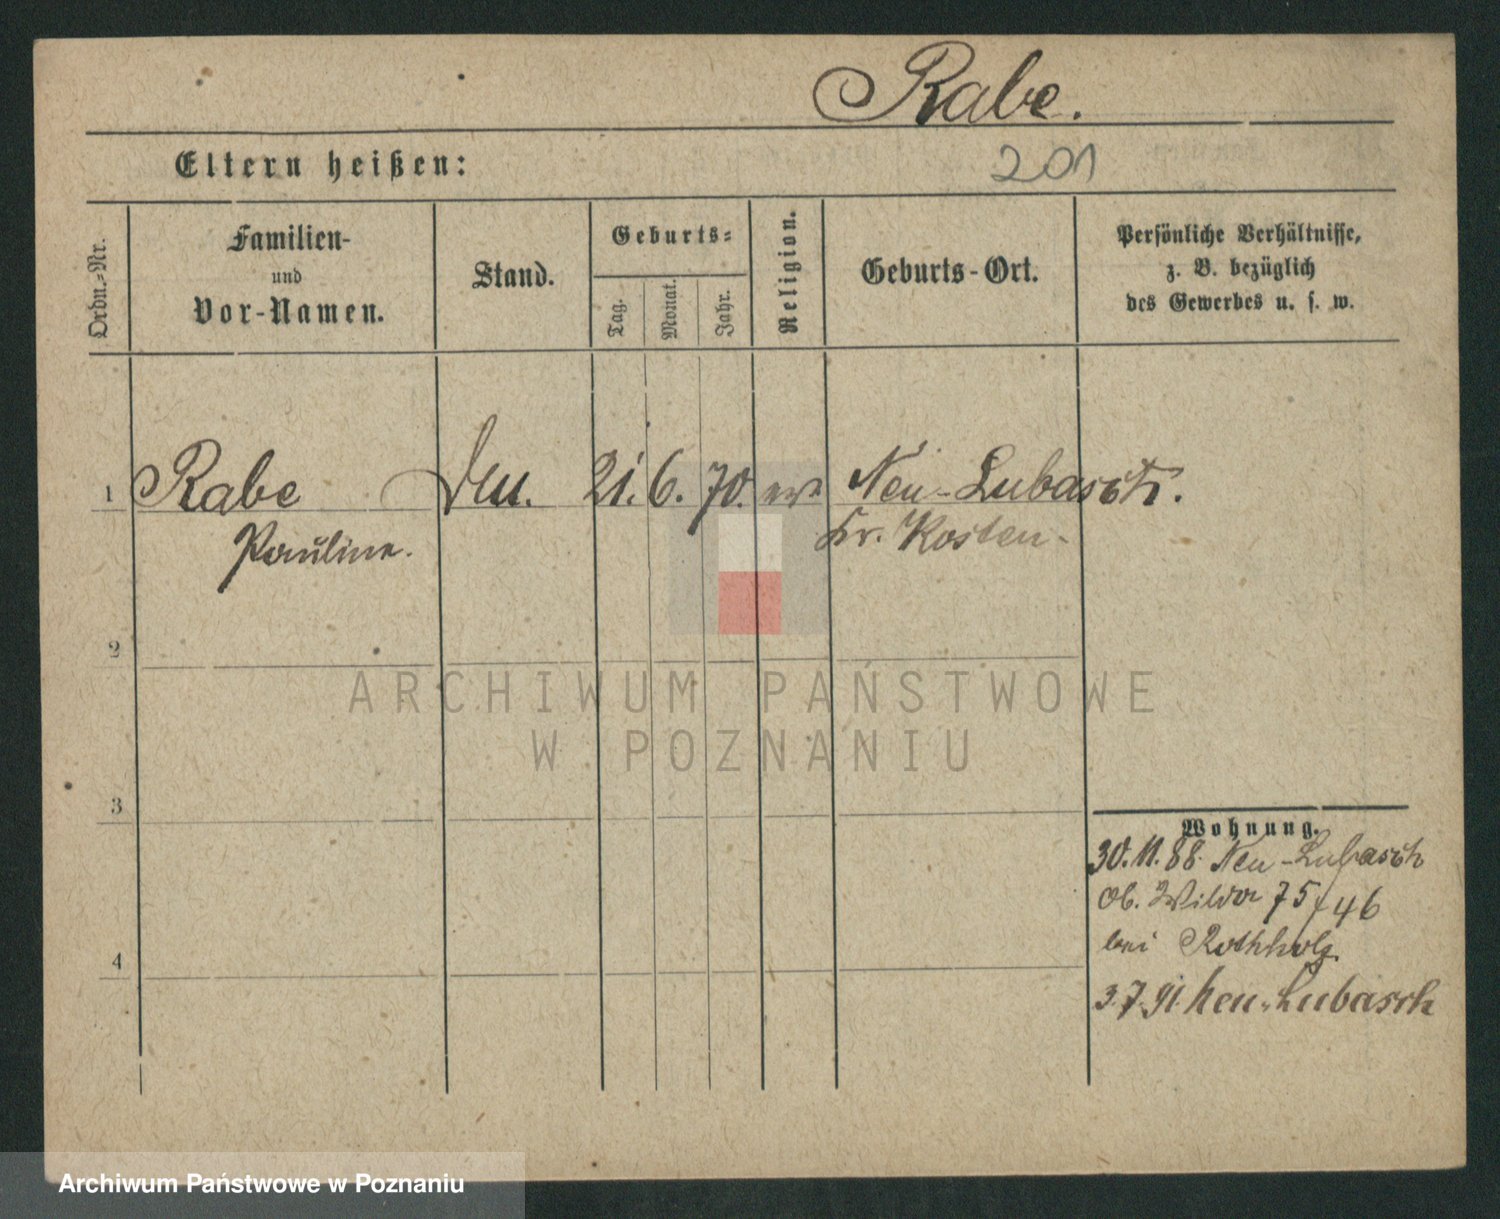 Rabe.
Eltern heißen:
201
Ordn.-Nr.
Familien-
und
Vor-Namen.
Stand.
Geburts-
Tag.
Monat.
Jahr.
Religion.
Geburts-Ort.
Persönliche Verhältnisse,
z. B. bezüglich
des Gewerbes u. s. w.
1 Rabe 21. 6. 70. Neu-Lubasch.
Pauline. Kr. Kosten-
2
ARCHIWUM PAŃSTWOWE
W POZNANIU
3
Wohnung.
30.11.88. Neu-Lubasch
Ob. Wilda 75/46
bei Rothholz.
4
3.7.91. Neu-Lubasch
Archiwum Państwowe w Poznaniu